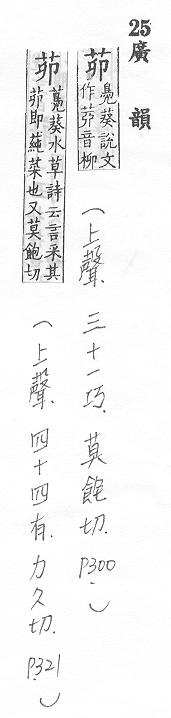 25廣韻
茆
鳧葵說文
作茆音柳
(上聲. 三十一巧. 莫飽切. P300.)
茆
鳧葵水草詩云言采其
茆即蒓菜也又莫飽切
(上聲. 四十四有. 力久切. P321.)